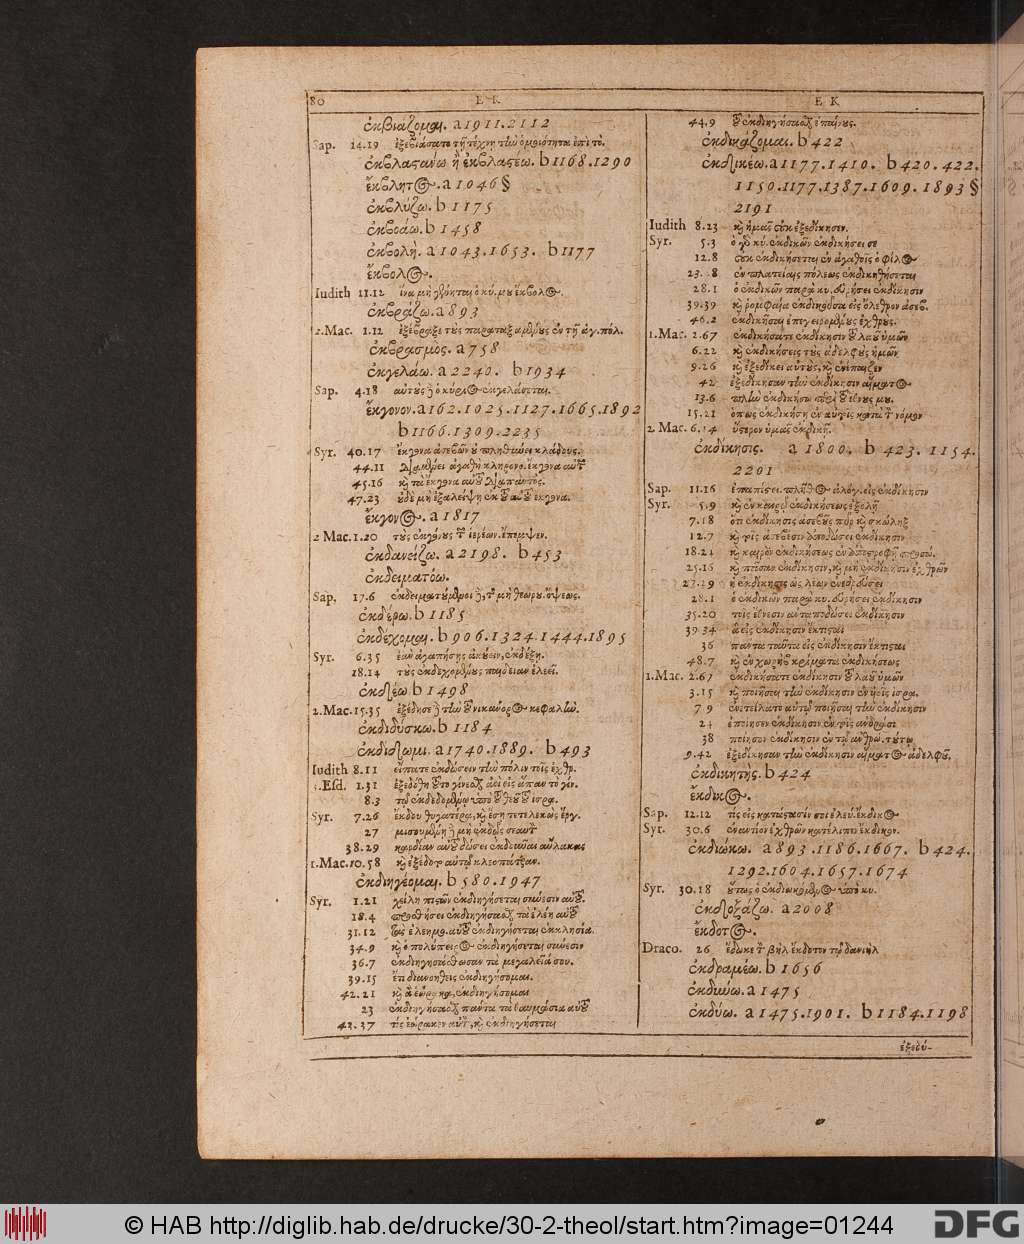 80 E K
ἐκβιάζομαι. a 1911. 2112
Sap. 14.19 ἐξεβιάσατο τῇ τέχνῃ τὴν ὁμοιότητα ἐπὶ τὸ.
ἐκβλαςάνω ἢ ἐκβλαςέω. b 1168. 1290
ἔκβλητος. a 1046 §
ἐκβλύζω. b 1175
ἐκβοάω. b 1458
ἐκβολή. a 1043. 1653. b 1177
ἔκβολος.
Iudith 11.12 ἵνα μὴ γένηται ὁ κύ. μου ἔκβολος.
ἐκβράζω. a 893
2.Mac. 1.12 ἐξέβρασε τοὺς παραταξαμένους ἐν τῇ ἁγ. πόλ.
ἐκβρασμὸς. a 758
ἐκγελάω. a 2240. b 1934
Sap. 4.18 αὐτοὺς δὲ ὁ κύριος ἐκγελάσεται.
ἔκγονον. a 162. 1025. 1127. 1665. 1892
b 1166. 1309. 2235
Syr. 40.17 ἔκγονα ἀσεβῶν οὐ πληθυνεῖ κλάδους.
44.11 διαμένει ἀγαθὴ κληρονο. ἔκγονα αὐτῶν
45.16 καὶ τὰ ἔκγονα αὐτοῦ διαπαντός.
47.23 οὐδὲ μὴ ἐξαλείψῃ ἐκλεκτοῦ αὐτοῦ ἔκγονα.
ἔκγονος. a 1817
2 Mac. 1.20 τοὺς ἐκγόνους τῶν ἱερέων. ἔπεμψεν.
ἐκδανείζω. a 2198. b 453
ἐκδειματόω.
Sap. 17.6 ἐκδειματούμενοι δὲ, τῆς μὴ θεωρου. ὄψεως.
ἐκδέρω. b 1185
ἐκδέχομαι. b 906. 1324. 1444. 1895
Syr. 6.35 ἐὰν ἀγαπήσῃς ἀκούειν, ἐκδέξῃ.
18.14 τοὺς ἐκδεχομένους παιδείαν ἐλεεῖ.
ἐκδέω. b 1498
2.Mac. 15.35 ἐξέδησε δὲ τὴν τοῦ νικάνορος κεφαλὴν.
ἐκδιδύσκω. b 1184
ἐκδίδωμι. a 1740. 1889. b 493
Iudith 8.11 εἴπατε ἐκδώσειν τὴν πόλιν τοῖς ἐχθρ.
1.Esd. 1.31
8.3 τῷ ἐκδεδομένῳ ὑπὸ τοῦ θεοῦ τοῦ ισρα.
Syr. 7.26 ἔκδου θυγατέρα, καὶ ἔσῃ τετελεκὼς ἔργ.
27 μισουμένῃ δὲ μὴ ἐκδῷς σεαυτὸν
38.29 καρδίαν αὐτοῦ δώσει ἐκδοῦναι αὔλακας
1.Mac. 10.58 καὶ ἐξέδοτο αὐτῷ κλεοπάτραν.
ἐκδιηγέομαι. b 580. 1947
Syr. 1.21 χείλη πιςῶν ἐκδιηγήσεται σύνεσιν αὐτοῦ.
18.4 προσθήσει ἐκδιηγήσασθαι τὰ ἐλέη αὐτοῦ
31.12 τὰς ἐλεημο. αὐτοῦ ἐκδιηγήσεται ἐκκλησία.
34.9 καὶ ὁ πολύπειρος ἐκδιηγήσεται σύνεσιν
36.7 ἐκδιηγησάσθωσαν τὰ μεγαλεῖά σου.
39.15 ἔτι διανοηθεὶς ἐκδιηγήσομαι.
42.21 καὶ ἃ ἑώρακα, ἐκδιηγήσομαι
23 ἐκδιηγήσασθαι πάντα τὰ θαυμάσια αὐτοῦ
43.37 τίς ἑόρακεν αὐτὸν, καὶ ἐκδιηγήσεται
E K
44.9 τοῦ ἐκδιηγήσασθαι ἐπαίνους.
ἐκδικάζομαι. b 422
ἐκδικέω. a 1177. 1410. b 420. 422.
1150. 1177. 1387. 1609. 1893 §
2191
Iudith 8.23 καὶ ἡμᾶς οὐκ ἐξεδίκησεν.
Syr. 5.3 ὁ γὰρ κύ. ἐκδικῶν ἐκδικήσει σε
12.8 οὐκ ἐκδικήσεται ἐν ἀγαθοῖς ὁ φίλος
23.28 ἐν πλατείαις πόλεως ἐκδικηθήσεται
28.1 ὁ ἐκδικῶν παρὰ κυ. εὑρήσει ἐκδίκησιν
39.39 καὶ ῥομφαία ἐκδικοῦσα εἰς ὄλεθρον ἀσεβ.
46.2 ἐκδικῆσαι ἐπεγειρομένους ἐχθρούς.
1.Mac. 2.67 ἐκδικήσατε ἐκδίκησιν τοῦ λαοῦ ὑμῶν
6.22 καὶ ἐκδικήσεις τοὺς ἀδελφοὺς ἡμῶν
9.26 καὶ ἐξεδίκει αὐτοὺς, καὶ ἐνέπαιζεν
42 ἐξεδίκησαν τὴν ἐκδίκησιν αἵματος
13.6 πλὴν ἐκδικήσω περὶ τοῦ ἔθνους μου.
15.21 ὅπως ἐκδικήσῃ ἐν αὐτοῖς κατὰ τὸν νόμον
2 Mac. 6.14 ὕςερον ὑμᾶς ἐκδικῇ.
ἐκδίκησις. a 1800. b 423. 1154.
2201
Sap. 11.16 ἐπαπέςει. πλῆθος ἀλόγ. εἰς ἐκδίκησιν
Syr. 5.9 καὶ ἐν καιρῷ ἐκδικήσεως ἐξολῇ
7.18 ὅτι ἐκδίκησις ἀσεβοῦς πῦρ καὶ σκώληξ
12.7 καὶ τοῖς ἀσεβέσιν ἀποδώσει ἐκδίκησιν
18.24 καὶ καιρὸν ἐκδικήσεως ἐν ἀποςροφῇ προσώ.
25.16 καὶ πᾶσαν ἐκδίκησιν, καὶ μὴ ἐκδίκησιν ἐχθρῶν
27.29 ἡ ἐκδίκησις ὡς λέων ἐνεδρεύσει
28.1 ὁ ἐκδικῶν παρὰ κυ. εὑρήσει ἐκδίκησιν
35.20 τοῖς ἔθνεσιν ἀνταποδώσει ἐκδίκησιν
39.34 ἃ εἰς ἐκδίκησιν ἔκτισται
36 πάντα ταῦτα εἰς ἐκδίκησιν ἔκτισται
48.7 καὶ ἐν χωρὴβ κρίματα ἐκδικήσεως
1.Mac. 2.67 ἐκδικήσατε ἐκδίκησιν τοῦ λαοῦ ὑμῶν
3.15 καὶ ποιῆσαι τὴν ἐκδίκησιν ἐν υἱοῖς ισρα.
7.9 ἐνετείλατο αὐτῷ ποιῆσαι τὴν ἐκδίκησιν
24 ἐποίησεν ἐκδίκησιν ἐν τοῖς ἀνδράσι
38 ποίησον ἐκδίκησιν ἐν τῷ ἀνθρώ. τούτῳ
9.42 ἐξεδίκησαν τὴν ἐκδίκησιν αἵματος ἀδελφοῦ.
ἐκδικητής. b 424
ἔκδικος.
Sap. 12.12 τίς εἰς κατάςασίν σοι ἐλεύ. ἔκδικος
Syr. 30.6 ἐναντίον ἐχθρῶν κατέλιπεν ἔκδικον.
ἐκδιώκω. a 893. 1186. 1667. b 424.
1292. 1604. 1657. 1674
Syr. 30.18 οὕτως ὁ ἐκδιωκόμενος ὑπὸ κυ.
ἐκδοξάζω. a 2008
ἔκδοτος.
Draco. 26 ἔδωκε τὸν βὴλ ἔκδοτον τῷ δανιήλ
ἐκδραμέω. b 1656
a 1475
ἐκδύω. a 1475. 1901. b 1184. 1198
ἐξεδύ-
© HAB http://diglib.hab.de/drucke/30-2-theol/start.htm?image=01244
DFG